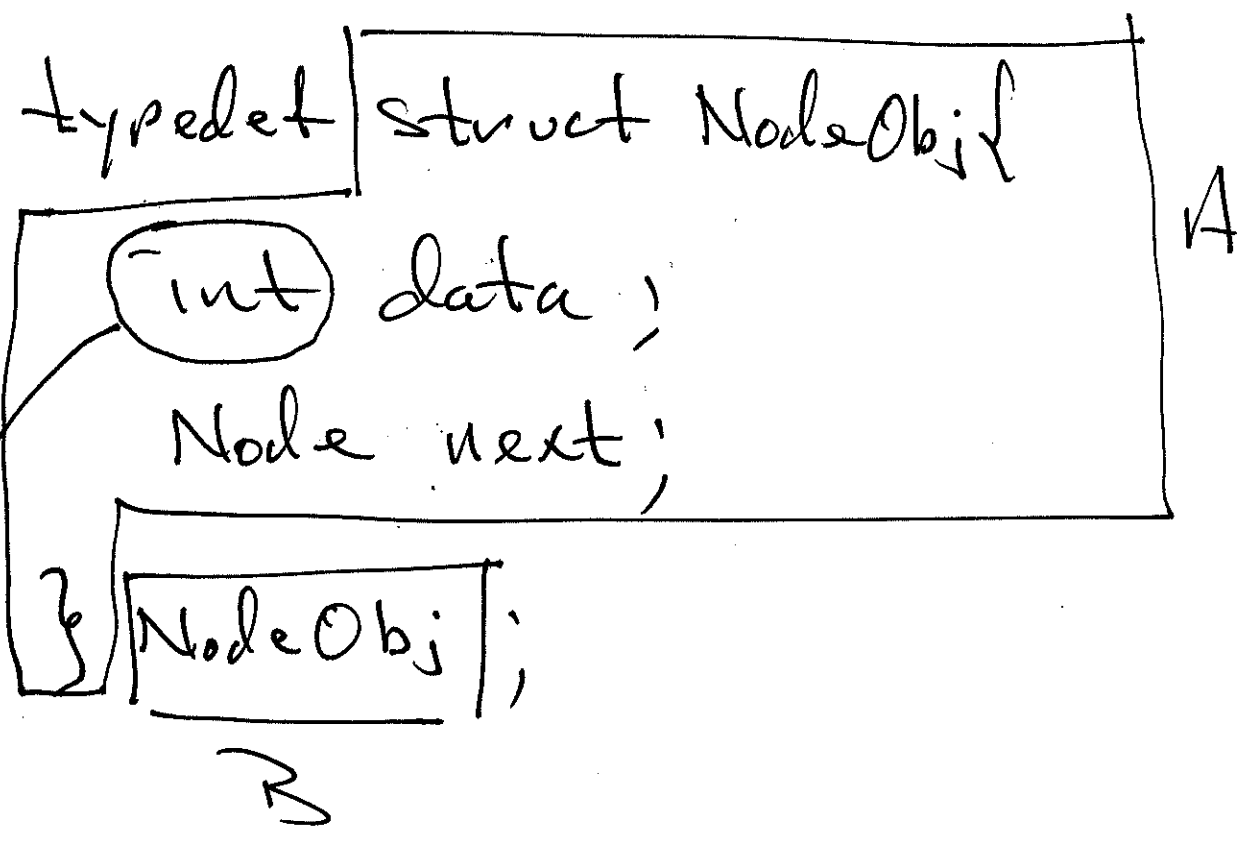 typedef struct NodeObj{
int data;
Node next;
} NodeObj;
A
B